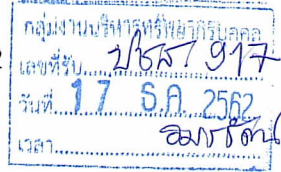 กลุ่มงานบริหารทรัพยากรบุคคล
เลขที่รับ 917
วันที่ 17 ธ.ค. 2562
เวลา